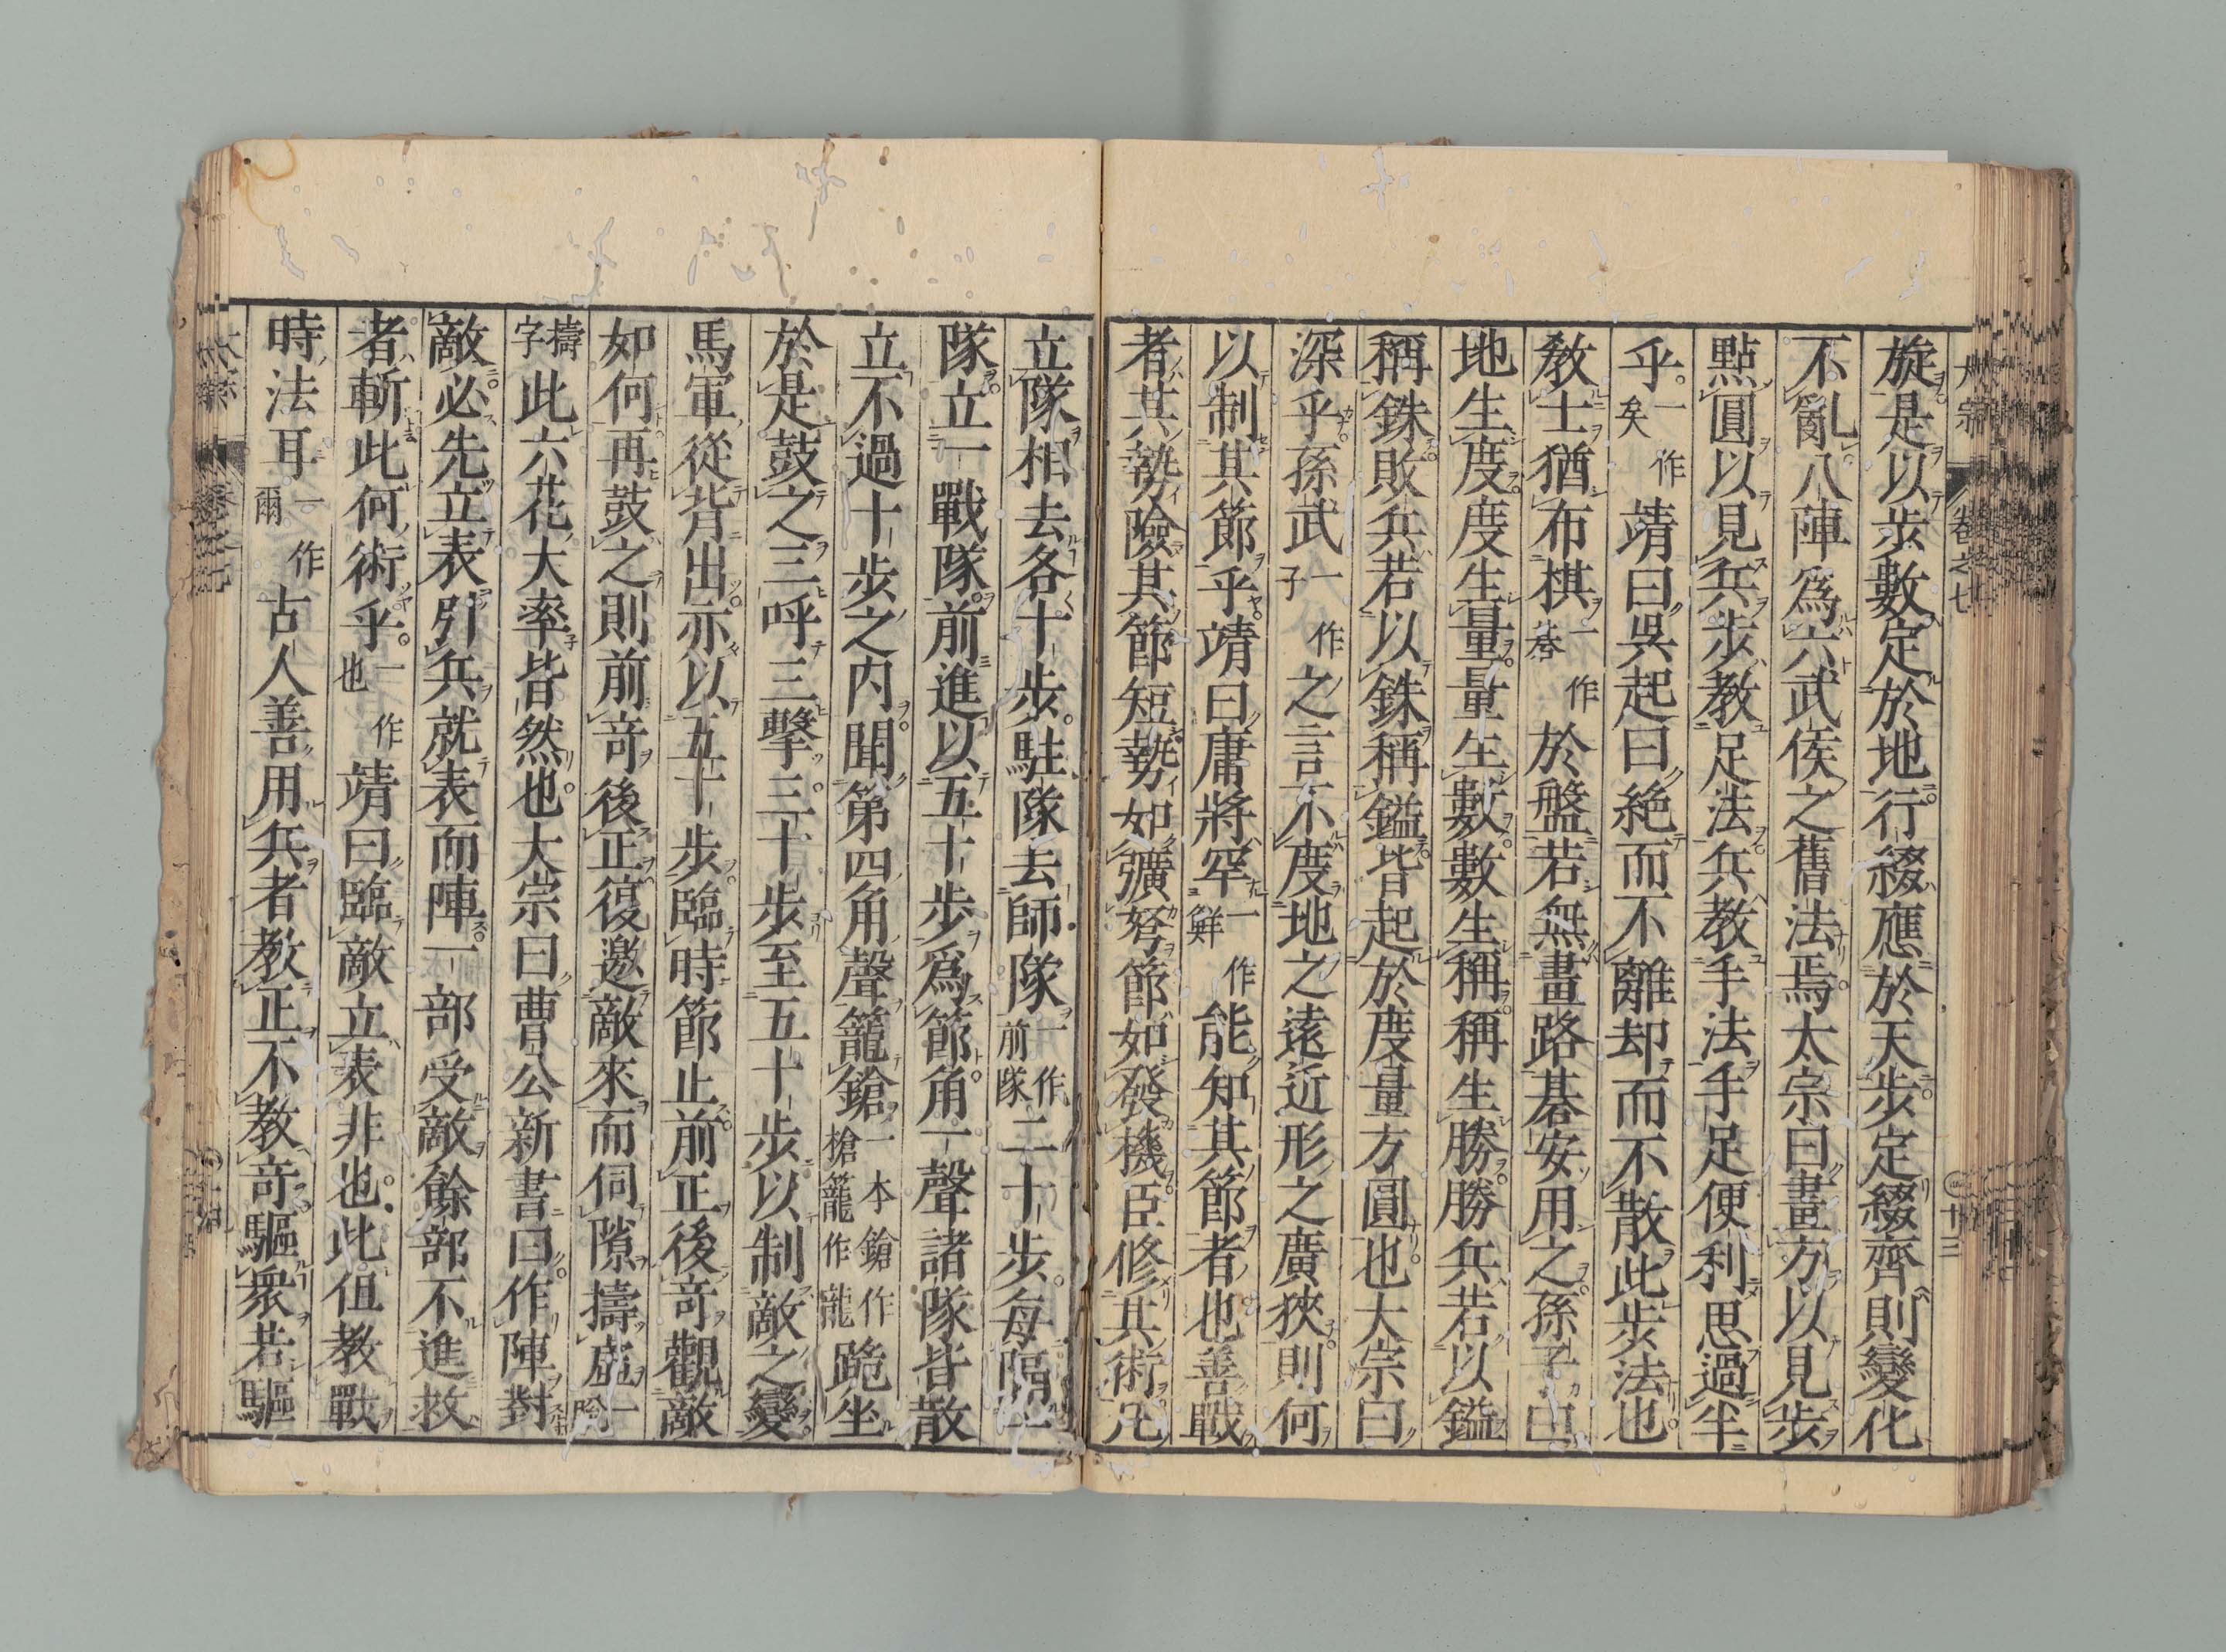 旋是以步數定於地行綴應於天步定綴齊則變化
不亂八陣爲六武侯之舊法焉太宗曰畫方以見步
點圓以見兵步教足法兵教手法手足便利思過半
乎一作矣靖曰吳起曰絶而不離却而不散此步法也
教士猶布棋一作碁於盤若無畫路碁安用之孫子曰
地生度度生量量生數數生稱稱生勝勝兵若以鎰
稱銖敗兵若以銖稱鎰皆起於度量方圓也太宗曰
深乎孫武一作子之言不度地之遠近形之廣狹則何
以制其節乎靖曰庸將罕一作鮮能知其節者也善戰
者其勢險其節短勢如彍弩節如發機臣修其術凡
立隊相去各十步駐隊去師隊一作前隊二十步每隔一
隊立一戰隊前進以五十步爲節角一聲諸隊皆散
立不過十步之内聞第四角聲籠鎗一本鎗作槍籠作龍跪坐
於是鼓之三呼三擊三十步至五十步以制敵之變
馬軍從背出亦以五十步臨時節止前正後奇觀敵
如何再鼓之則前奇後正復邀敵來而伺隙擣虛一
擣字此六花大率皆然也大宗曰曹公新書曰作陣對
敵必先立表引兵就表而陣一部受敵餘部不進救
者斬此何術乎一作也靖曰臨敵立表非也此但教戰
時法耳一作爾古人善用兵者教正不教奇驅衆若驅
大宗
卷之七
十三